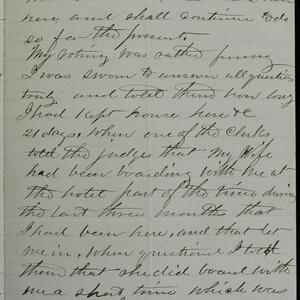 here, and shall continue to do
so for the present.
My voting was rather funny
I was sworn to answer all questions
truly and told them how long
I had kept house here &c
21 days. when one of the clerks
told the judges that my Wife
had been boarding with me at
the hotel part of the time during
the last three months that
I had been here, and that let
me in, when questioned I told
them that she did board with
me a short time which was